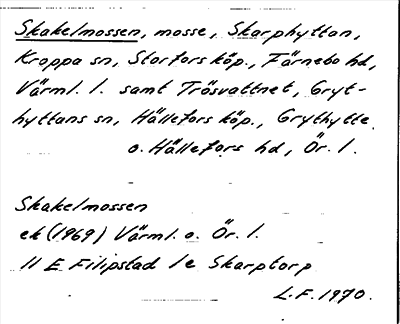 Skakelmossen, mosse, Skarphyttan,
Kroppa sn, Storfors köp., Färnebo hd,
Värml. l. samt Trösvattnet, Gryt-
hyttans sn, Hällefors köp., Grythytte
o. Hällefors hd, Ör. l.
Skakelmossen
ek (1969) Värml. o. Ör. l.
11 E Filipstad 1e Skarptorp
L.F. 1970.